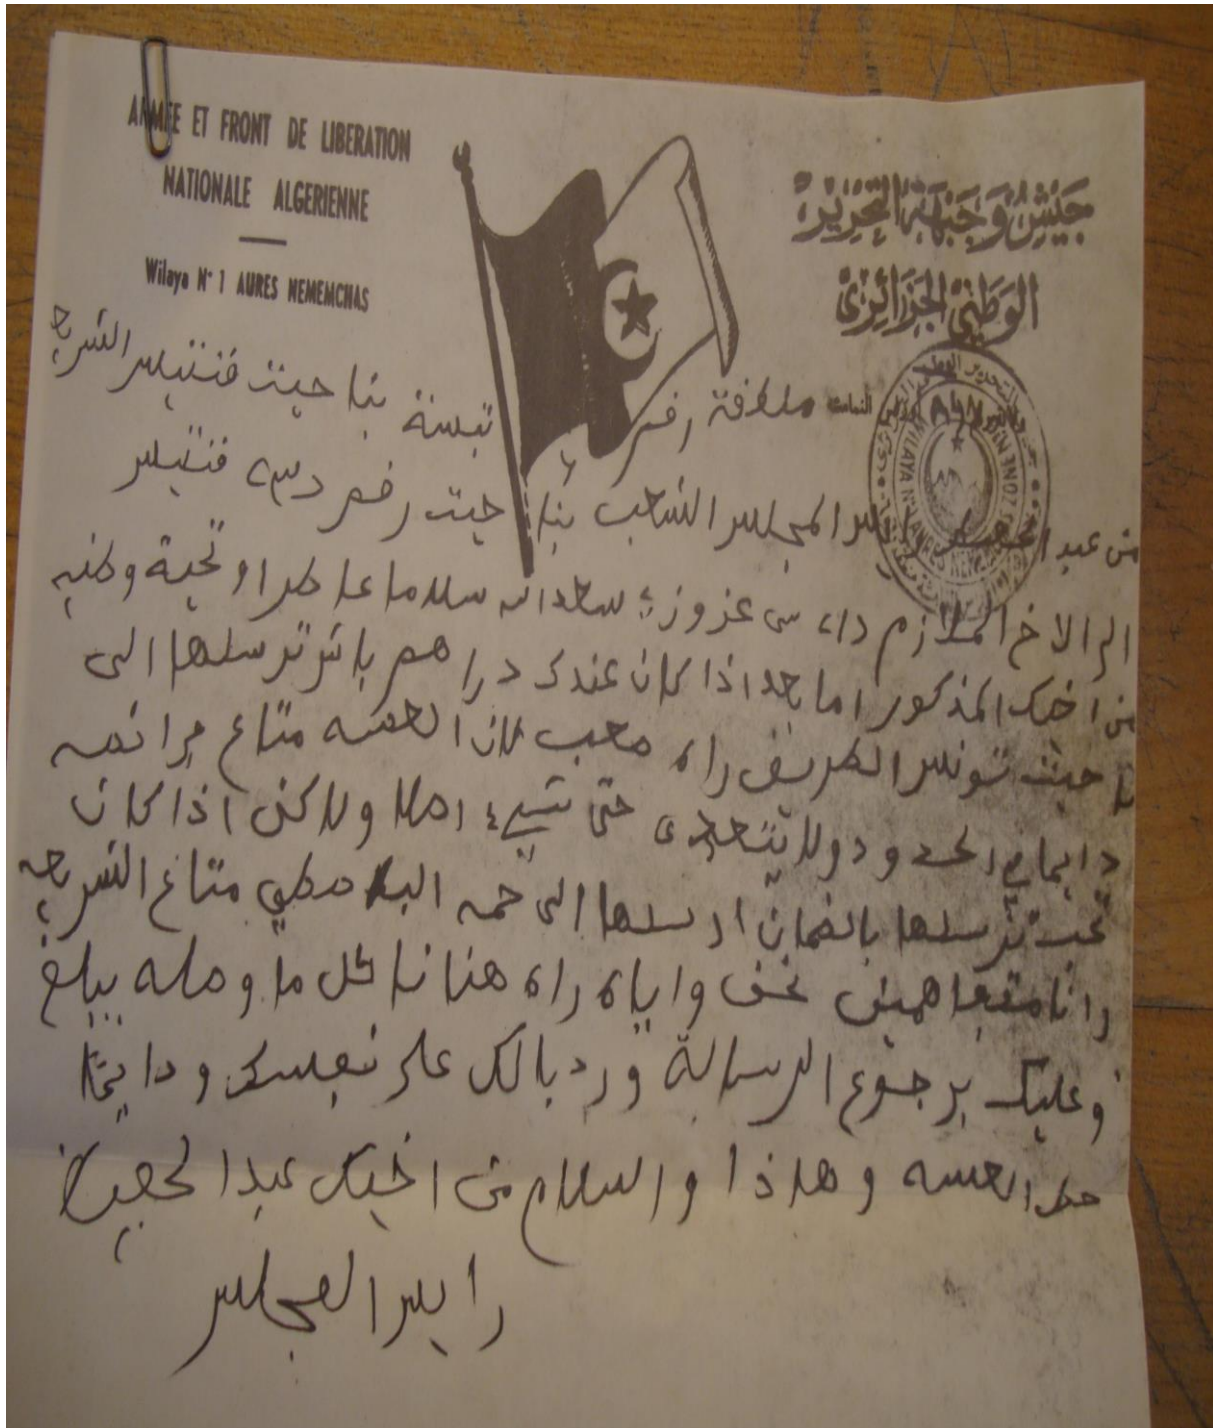 ARMEE ET FRONT DE LIBERATION
NATIONALE ALGERIENNE
Wilaya N° 1 AURES NEMEMCHAS
جَيْش وَجَبْهَة التَّحْرِير
الوَطَنِي الجَزَائِرِي
منطقة رقم تبسة بنا حيت فنتيس الشريعة
من عبد المجلس الشعب بنا حيت رقم فنتيس
الى الاخ الملازم سي عزوز سعد الله سلاما عاطرا وتحية وطنيه
من اخيك المذكور اما بعد اذا كان عندك دراهم باش ترسلها الى
نا حيت تونس الطريق راه صعب لان العسه متاع فرانسه
دايما في الحدود ولا يتعدى حتى شيء اصلا ولاكن اذا كان
تحب ترسلها بالضمان ارسلها الى حمه متاع الشريعه
رانا متفاهمين نحن واياه راه هنانا كل ما وصله يبلغ
وعليك برجوع الرسالة ورد بالك على نفسك ودايما
حط العسه وهاذا والسلام من اخيك عبد الحفيظ
رايس المجلس